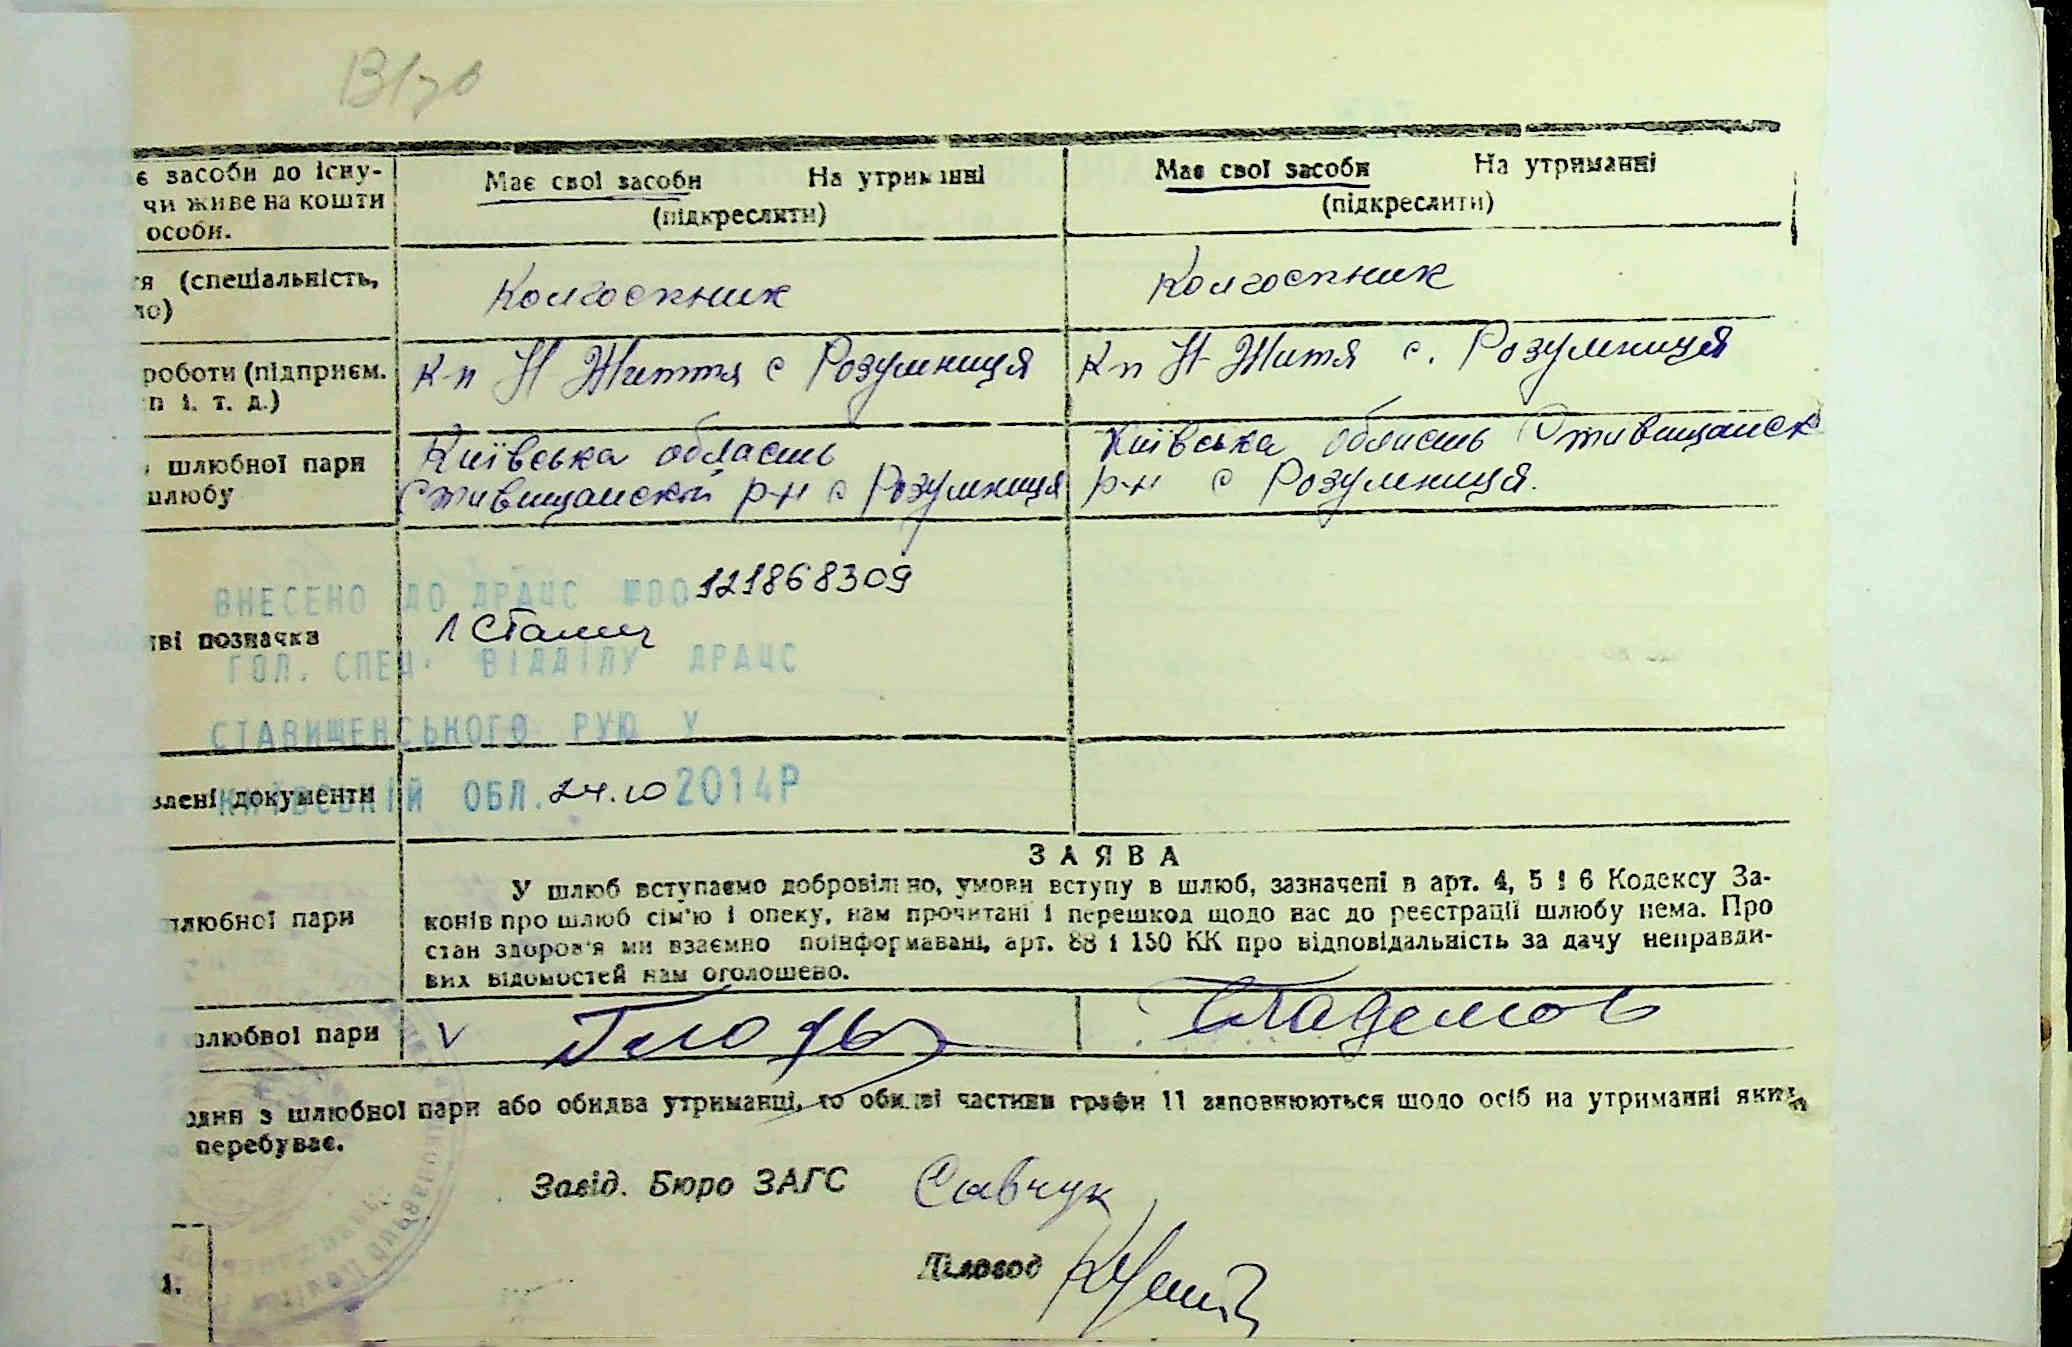 є засоби до існу-
чи живе на кошти
особи.
Має свої засоби На утриманні
(підкреслити)
Має свої засоби На утриманні
(підкреслити)
я (спеціальність,
ло)
Колгоспник
Колгоспник
роботи (підприєм.
п і. т. д.)
к-п Н Життя с Розумниця
к-п Н Житя с. Розумниця
шлюбної пари
шлюбу
Київська область
Ставищанский р-н с Розумниця
Київська область Ставищанск
р-н с Розумниця.
ві позначка
ВНЕСЕНО ДО ДРАЦС №00121868309
ГОЛ. СПЕЦ. ВІДДІЛУ ДРАЦС
СТАВИЩЕНСЬКОГО РУЮ У
КИЇВСЬКІЙ ОБЛ. 24.10 2014Р
влені документи
ЗАЯВА
У шлюб вступаємо добровільно, умови вступу в шлюб, зазначені в арт. 4, 5 і 6 Кодексу За-
конів про шлюб сім'ю і опеку, нам прочитані і перешкод щодо нас до реєстрації шлюбу нема. Про
стан здоров'я ми взаємно поінформавані, арт. 88 і 150 КК про відповідальність за дачу неправди-
вих відомостей нам оголошено.
шлюбної пари
шлюбної пари
V
один з шлюбної пари або обидва утриманці, то обидві частини графи 11 заповнюються щодо осіб на утриманні яких
перебуває.
Завід. Бюро ЗАГС Савчук
Діловод